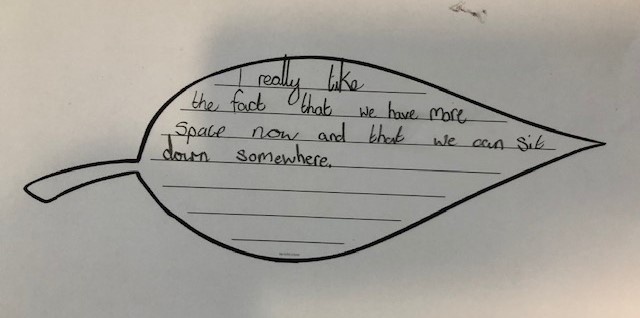 I really like
the fact that we have more
Space now and that we can sit
down somewhere.